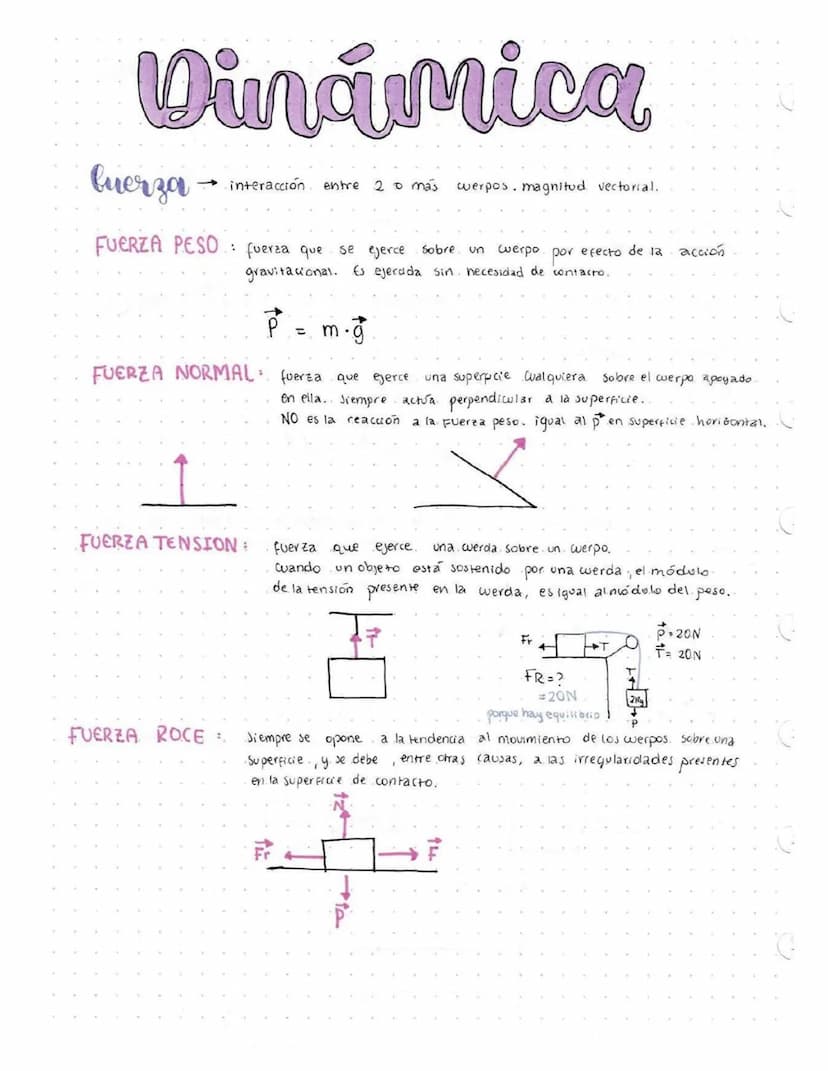 Dinámica
fuerza → interacción entre 2 o más cuerpos. magnitud vectorial.
FUERZA PESO : fuerza que se ejerce sobre un cuerpo por efecto de la acción
gravitacional. Es ejercida sin necesidad de contacto.
P⃗ = m·g⃗
FUERZA NORMAL: fuerza que ejerce una superficie cualquiera sobre el cuerpo apoyado
en ella. Siempre actúa perpendicular a la superficie.
NO es la reacción a la fuerza peso. igual al p⃗ en superficie horizontal.
FUERZA TENSION: fuerza que ejerce una cuerda sobre un cuerpo.
Cuando un objeto está sostenido por una cuerda, el módulo
de la tensión presente en la cuerda, es igual al módulo del peso.
T⃗
Fr T
P⃗ = 20N
T⃗ = 20N
FR = ?
= 20N
porque hay equilibrio
T
2Kg
P
FUERZA ROCE : Siempre se opone a la tendencia al movimiento de los cuerpos sobre una
superficie, y se debe, entre otras causas, a las irregularidades presentes
en la superficie de contacto.
N⃗
F⃗r F⃗
P⃗